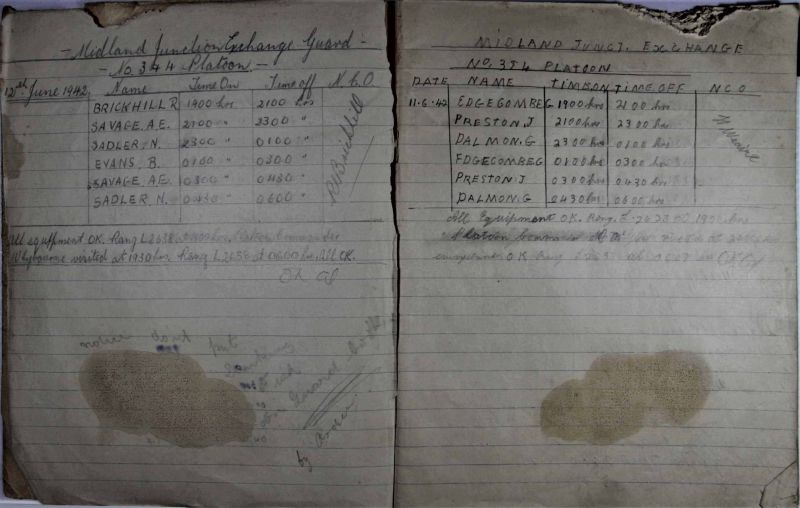 - Midland Junction Exchange Guard -
- No. 3 & 4 Platoon. -
12th June 1942. Name Time On Time off N.C.O
BRICKHILL R 1900 hrs 2100 hrs
SAVAGE. A.E. 2100 " 2300 "
SADLER. N. 2300 " 0100 "
EVANS. B. 0100 " 0300 "
SAVAGE. A.E. 0300 " 0430 "
SADLER. N. 0430 " 0600 "
R Brickhill
All equipment OK. Rang L2638. 1900 hrs. Platoon Commander
visited at 1930 hrs. Rang L2638 at 0600 hrs. All OK.
notice book put
on Guard
by Order
MIDLAND JUNCT. EXCHANGE
No. 3&4 PLATOON
DATE NAME TIME ON TIME OFF NCO
11.6.42 EDGECOMBE G 1900 hrs 2100 hrs
PRESTON. J 2100 hrs 2300 hrs
DALMON. G 2300 hrs 0100 hrs
EDGECOMBE G 0100 hrs 0300 hrs
PRESTON. J 0300 hrs 0430 hrs
DALMON. G 0430 hrs 0600 hrs
All Equipment O.K. Rang
Platoon visited at
O K Rang